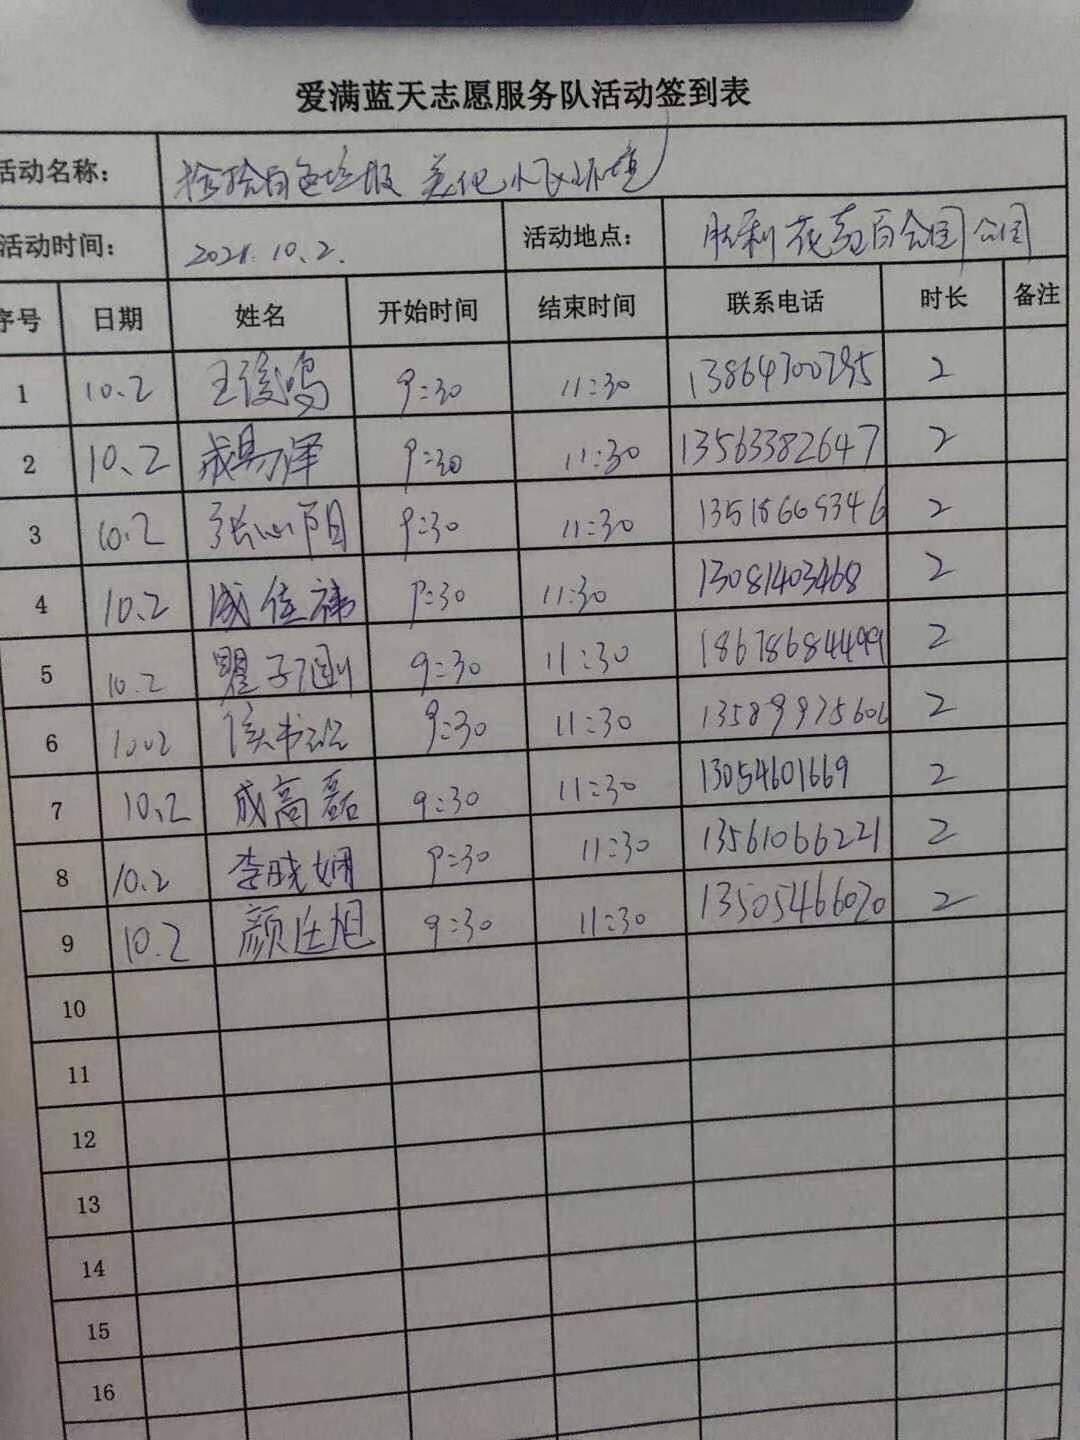 爱满蓝天志愿服务队活动签到表
活动名称: 捡拾白色垃圾 美化小区环境
活动时间: 2021.10.2. 活动地点: 胜利花苑百合园公园
序号 日期 姓名 开始时间 结束时间 联系电话 时长 备注
1 10.2 王俊鸣 9:30 11:30 13864700795 2
2 10.2 成易泽 9:30 11:30 13563382647 2
3 10.2 张心阳 9:30 11:30 13518669346 2
4 10.2 成佳祎 9:30 11:30 13081403468 2
5 10.2 瞿子涵 9:30 11:30 18678684499 2
6 10.2 侯书 9:30 11:30 13589975606 2
7 10.2 成高磊 9:30 11:30 13054601669 2
8 10.2 李晓娴 9:30 11:30 13561066221 2
9 10.2 颜廷旭 9:30 11:30 13505466070 2
10
11
12
13
14
15
16